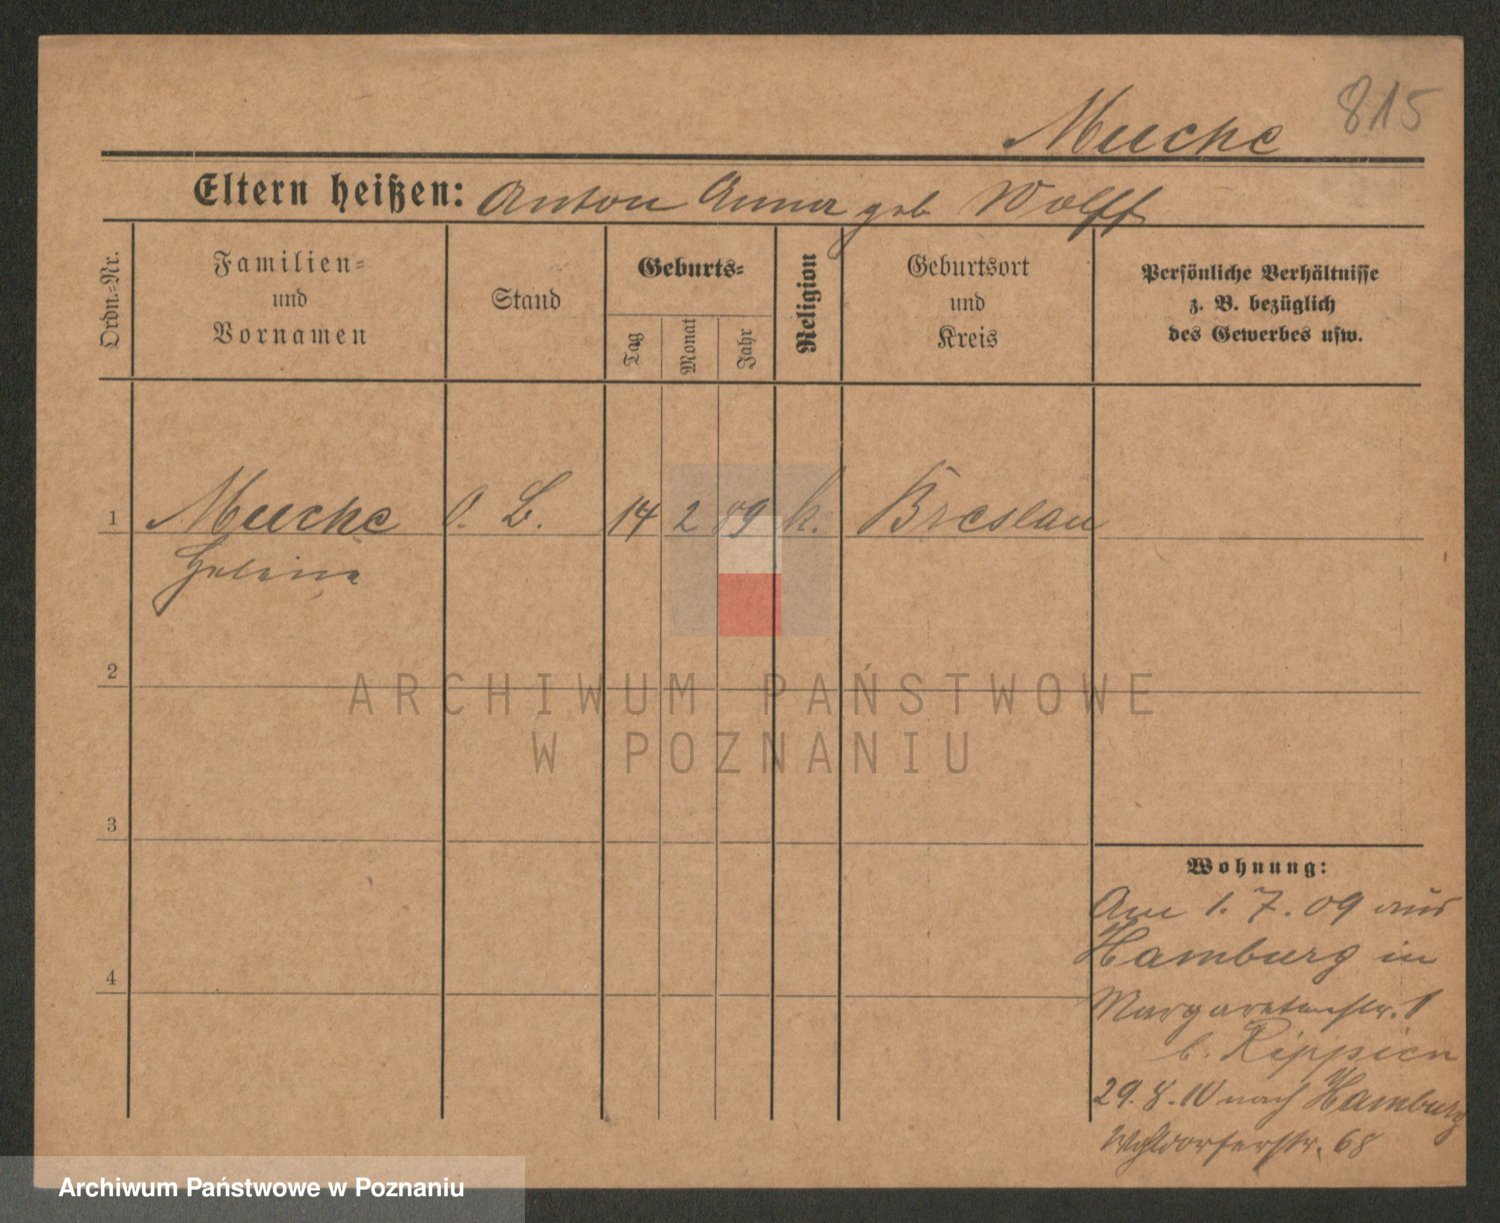 815
Muche
Eltern heißen: Anton Anna geb Wolff
Ordn.-Nr.
Familien-
und
Vornamen
Stand
Geburts-
Tag
Monat
Jahr
Religion
Geburtsort
und
Kreis
Persönliche Verhältnisse
z. B. bezüglich
des Gewerbes usw.
1 Muche O. L. 14 2 09 k. Breslau
Helene
2
3
4
Wohnung:
Am 1.7.09 aus
Hamburg in
Margaretenstr. 1
b. Rippien
29.8.10 nach Hamburg
Wohldorferstr. 68
ARCHIWUM PAŃSTWOWE
W POZNANIU
Archiwum Państwowe w Poznaniu